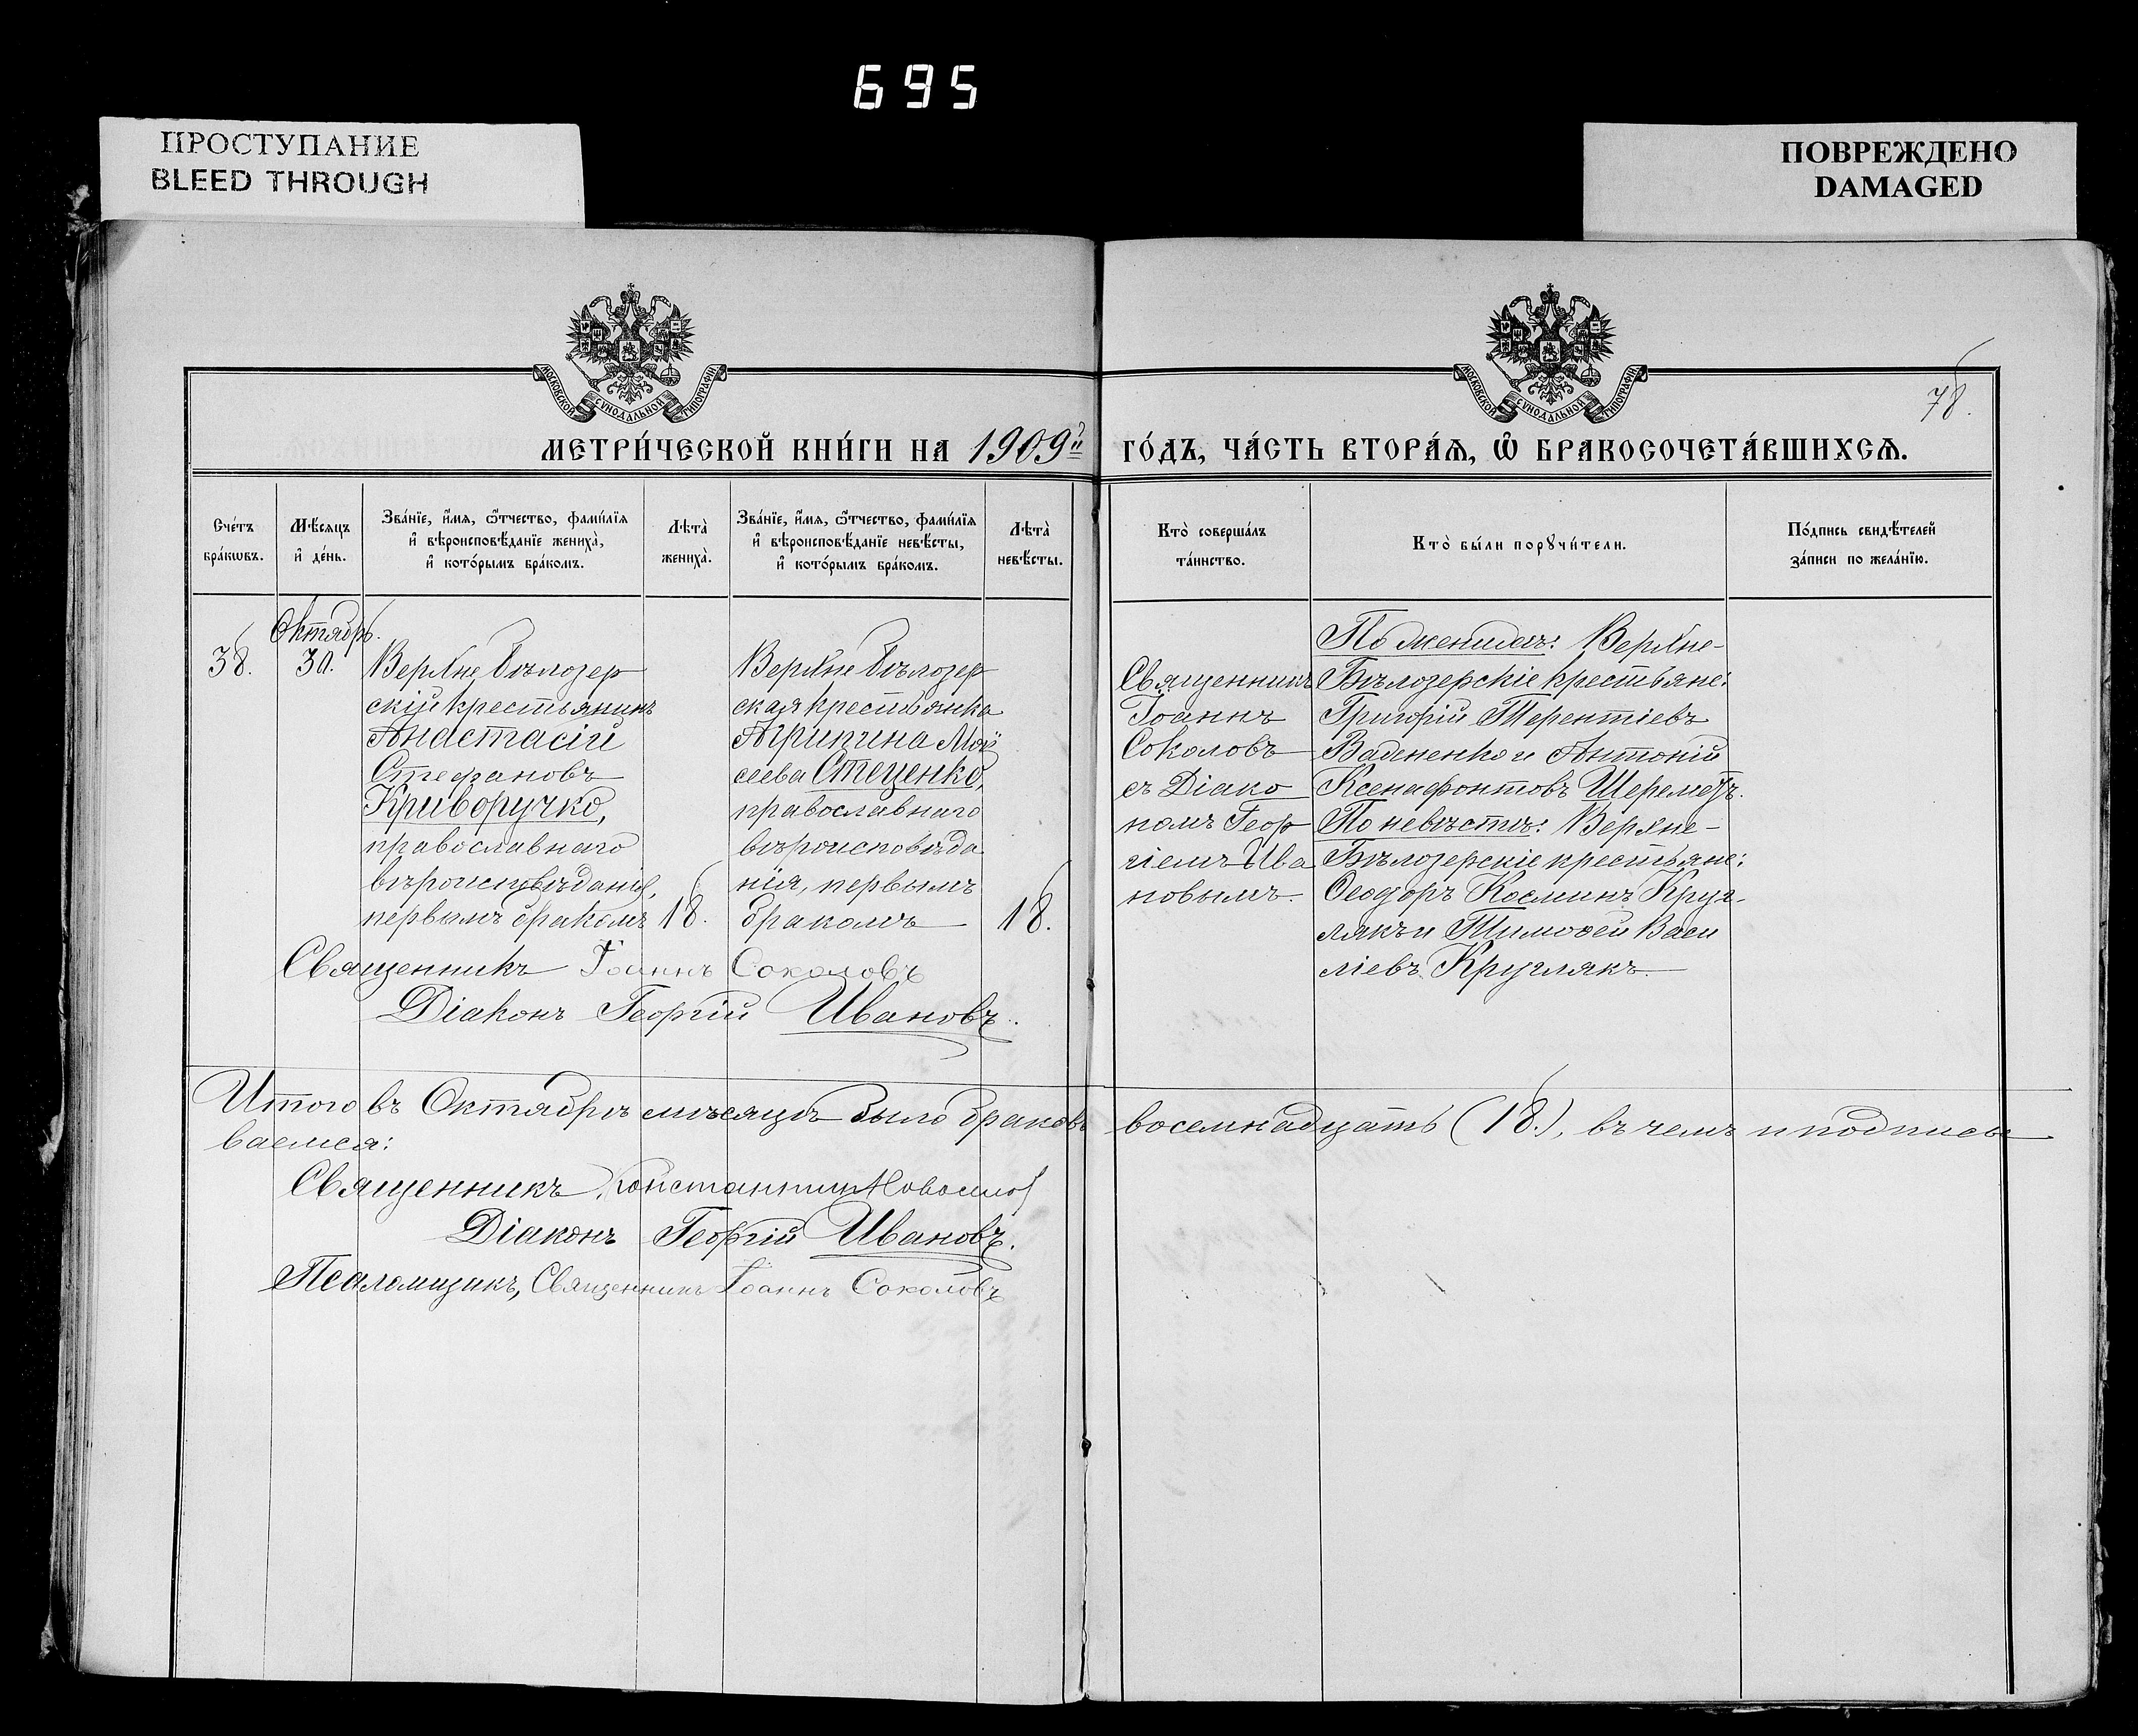 695
ПРОСТУПАНИЕ
BLEED THROUGH
ПОВРЕЖДЕНО
DAMAGED
МОСКОВСКОЙ СѴНОДАЛЬНОЙ ТИПОГРАФІИ
МОСКОВСКОЙ СѴНОДАЛЬНОЙ ТИПОГРАФІИ
78.
МЕТРИ́ЧЕСКОЙ КНИ́ГИ НА 1909й ГО́ДЪ, ЧА́СТЬ ВТОРА́Ѧ, Ѽ БРАКОСОЧЕТА́ВШИХСѦ.
Сче́тъ
бра́кѡвъ.
Мѣ́сяцъ
и҆ де́нь.
Зва́нїе, и҆́мѧ, ѻ҆́тчество, фами́лїѧ
и҆ вѣроисповѣ́данїе жениха̀,
и҆ кото́рымъ бра́комъ.
Лѣта̀
жениха̀.
Зва́нїе, и҆́мѧ, ѻ҆́тчество, фами́лїѧ
и҆ вѣроисповѣ́данїе невѣ́сты,
и҆ кото́рымъ бра́комъ.
Лѣта̀
невѣ́сты.
Кто̀ соверша́лъ
та́инство.
Кто̀ бы́ли порꙋчи́тели.
По́дпись свидѣ́телей
за́писи по жела́нїю.
38.
Октябр.
30.
Верхнебѣлозер
скій крестьянинъ
Анастасій
Стефановъ
Криворучко,
православнаго
вѣроисповѣданія,
первымъ бракомъ
18.
Верхнебѣлозер
ская крестьянка
Агрипина Мои
сеева Стеценко,
православнаго
вѣроисповѣда
нія, первымъ
бракомъ
18.
Священникъ
Іоаннъ
Соколовъ
съ Діако
номъ Геор
гіемъ Ива
новымъ.
По женихѣ: Верхне-
Бѣлозерскіе крестьяне:
Григорій Терентіевъ
Антоній
Ксенафонтовъ Шереметъ.
По невѣстѣ: Верхне-
Бѣлозерскіе крестьяне:
Ѳеодоръ Косминъ Круг-
лякъ и Тимоѳей Васи
ліевъ Круглякъ.
Священникъ Іоаннъ Соколовъ
Діаконъ Георгій Ивановъ.
Итого въ Октябрѣ мѣсяцѣ было браковъ восемнадцать (18.), въ чемъ и подписы
ваемся:
Священникъ Константинъ
Діаконъ Георгій Ивановъ.
Псаломщикъ, Священникъ Іоаннъ Соколовъ